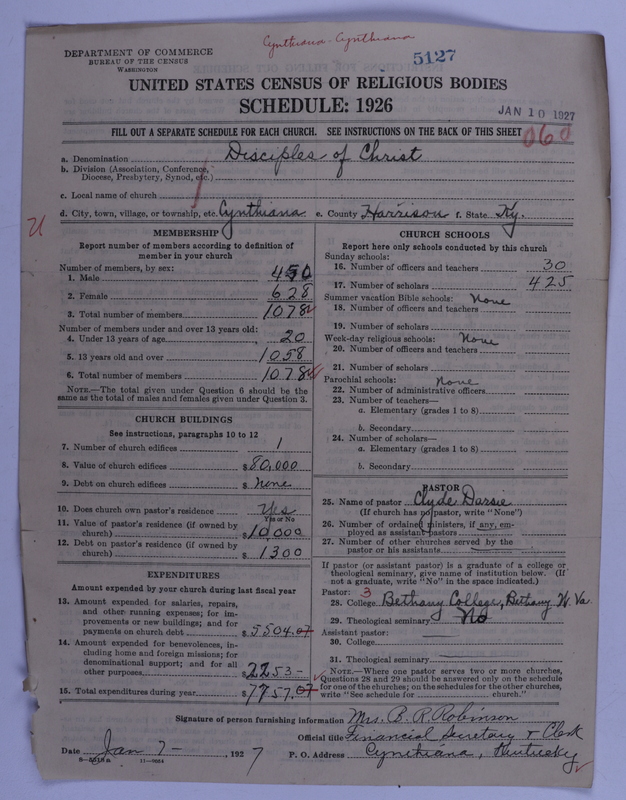 Cynthiana - Cynthiana
5127
DEPARTMENT OF COMMERCE
BUREAU OF THE CENSUS
WASHINGTON
UNITED STATES CENSUS OF RELIGIOUS BODIES
SCHEDULE: 1926
JAN 10 1927
FILL OUT A SEPARATE SCHEDULE FOR EACH CHURCH. SEE INSTRUCTIONS ON THE BACK OF THIS SHEET
060
a. Denomination Disciples of Christ
b. Division (Association, Conference, Diocese, Presbytery, Synod, etc.)
c. Local name of church
d. City, town, village, or township, etc. Cynthiana e. County Harrison f. State Ky.
MEMBERSHIP
Report number of members according to definition of
member in your church
Number of members, by sex:
1. Male 450
2. Female 628
3. Total number of members 1078
Number of members under and over 13 years old:
4. Under 13 years of age 20
5. 13 years old and over 1058
6. Total number of members 1078
NOTE.—The total given under Question 6 should be the
same as the total of males and females given under Question 3.
CHURCH BUILDINGS
See instructions, paragraphs 10 to 12
7. Number of church edifices 1
8. Value of church edifices $ 80,000
9. Debt on church edifices $ None
10. Does church own pastor's residence Yes
Yes or No
11. Value of pastor's residence (if owned by
church) $ 10,000
12. Debt on pastor's residence (if owned by
church) $ 1300
EXPENDITURES
Amount expended by your church during last fiscal year
13. Amount expended for salaries, repairs,
and other running expenses; for im-
provements or new buildings; and for
payments on church debt $ 5504.07
14. Amount expended for benevolences, in-
cluding home and foreign missions; for
denominational support; and for all
other purposes $ 2253-
15. Total expenditures during year $ 7757.07
CHURCH SCHOOLS
Report here only schools conducted by this church
Sunday schools:
16. Number of officers and teachers 30
17. Number of scholars 425
Summer vacation Bible schools: None
18. Number of officers and teachers
19. Number of scholars
Week-day religious schools: None
20. Number of officers and teachers
21. Number of scholars
Parochial schools: None
22. Number of administrative officers
23. Number of teachers—
a. Elementary (grades 1 to 8)
b. Secondary
24. Number of scholars—
a. Elementary (grades 1 to 8)
b. Secondary
PASTOR
25. Name of pastor Clyde Darsie
(If church has no pastor, write "None")
26. Number of ordained ministers, if any, em-
ployed as assistant pastors
27. Number of other churches served by the
pastor or his assistants
If pastor (or assistant pastor) is a graduate of a college or
theological seminary, give name of institution below. (If
not a graduate, write "No" in the space indicated.)
Pastor: 3
28. College Bethany College, Bethany W. Va.
29. Theological seminary No
Assistant pastor:
30. College
31. Theological seminary
NOTE.—Where one pastor serves two or more churches,
Questions 28 and 29 should be answered only on the schedule
for one of the churches; on the schedules for the other churches,
write "See schedule for church."
Signature of person furnishing information Mrs. B. R. Robinson
Official title Financial Secretary & Clerk
Date Jan 7- 1927 P. O. Address Cynthiana, Kentucky
11—9684